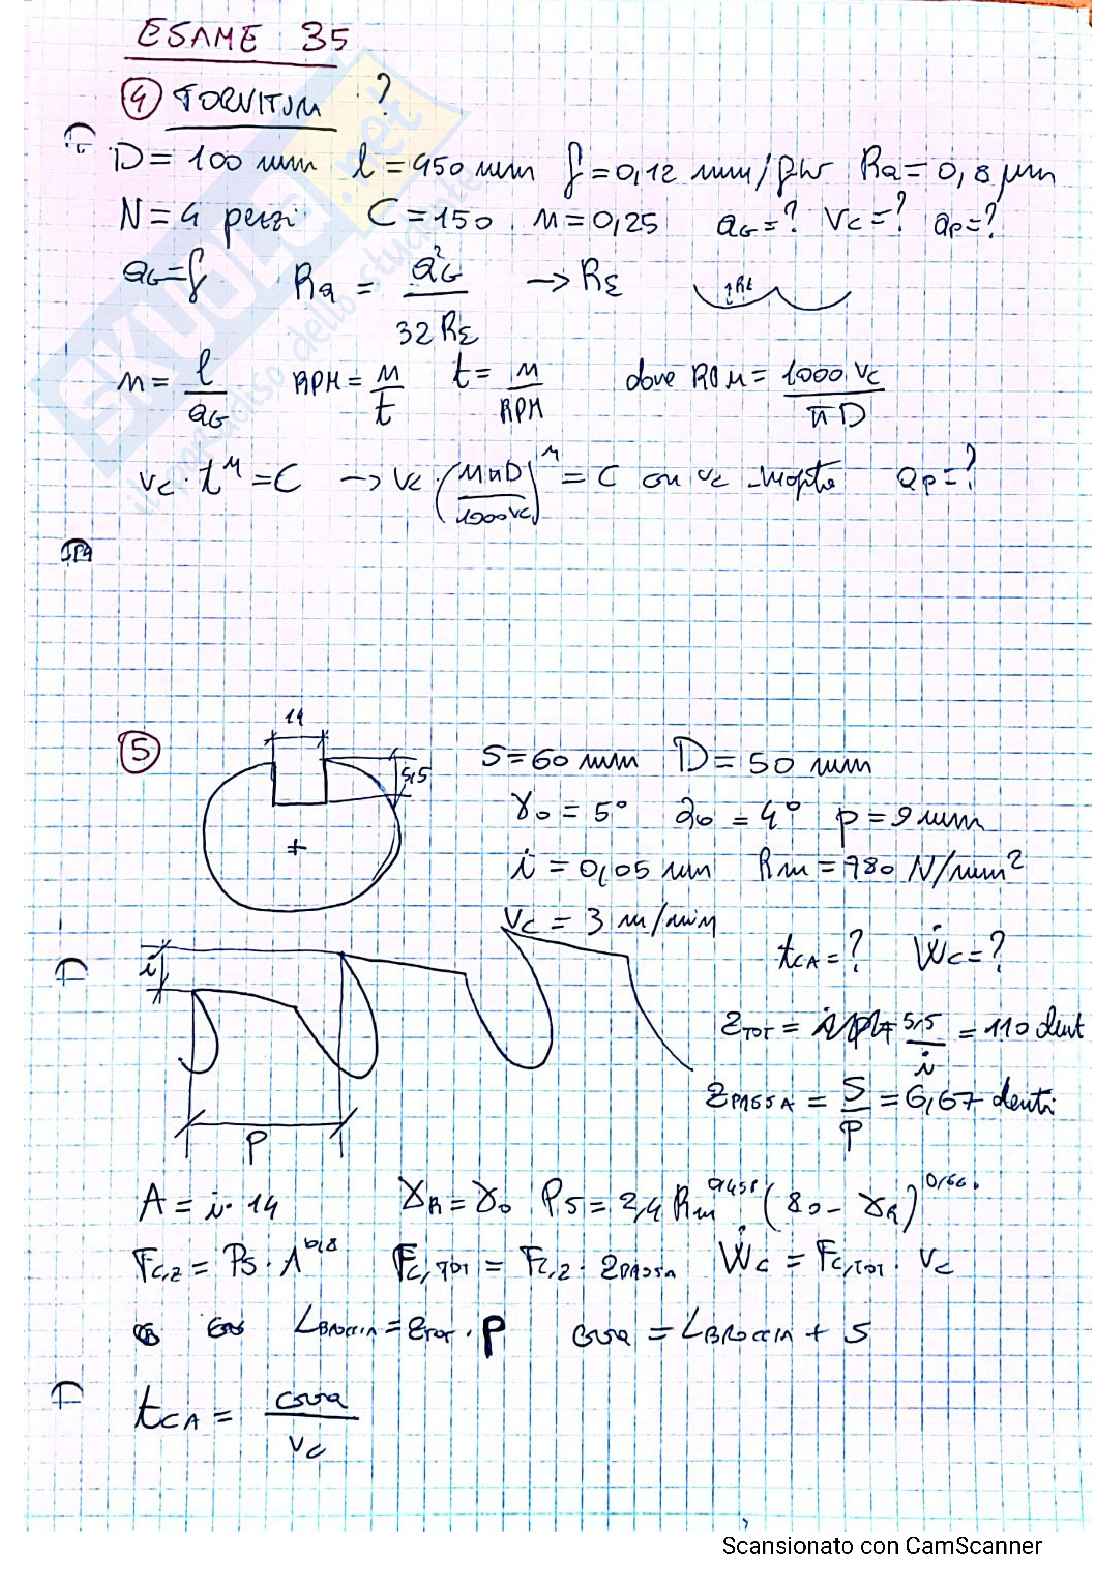 ESAME 35
④ TORNITURA ?
D = 100 mm l = 450 mm f = 0,12 mm/giro Ra = 0,8 μm
N = 4 pezzi C = 150 n = 0,25 aG = ? Vc = ? ap = ?
aG = f Ra = a²G / 32 Rε → Rε Rε
n = l / aG RPM = n / t t = n / RPM dove RPM = 1000 Vc / π D
Vc · t^n = C → Vc · (n π D / 1000 Vc)^n = C con Vc ap = ?
⑤ 14 5,5 S = 60 mm D = 50 mm
γo = 5° αo = 4° p = 9 mm
i = 0,05 mm Rm = 780 N/mm²
Vc = 3 m/min
i tCA = ? Ẇc = ?
zTOT = 5,5 / i = 110 dent
zPASSA = S / p = 6,67 denti
p
A = i · 14 γR = γo Ps = 2,4 Rm^0,454 (80 - γR)^0,666
Fc,z = Ps · A^0,8 Fc,TOT = Fc,z · zPASSA Ẇc = Fc,TOT · Vc
LBROCCIA = zTOT · p corsa = LBROCCIA + S
tCA = corsa / Vc
Scansionato con CamScanner